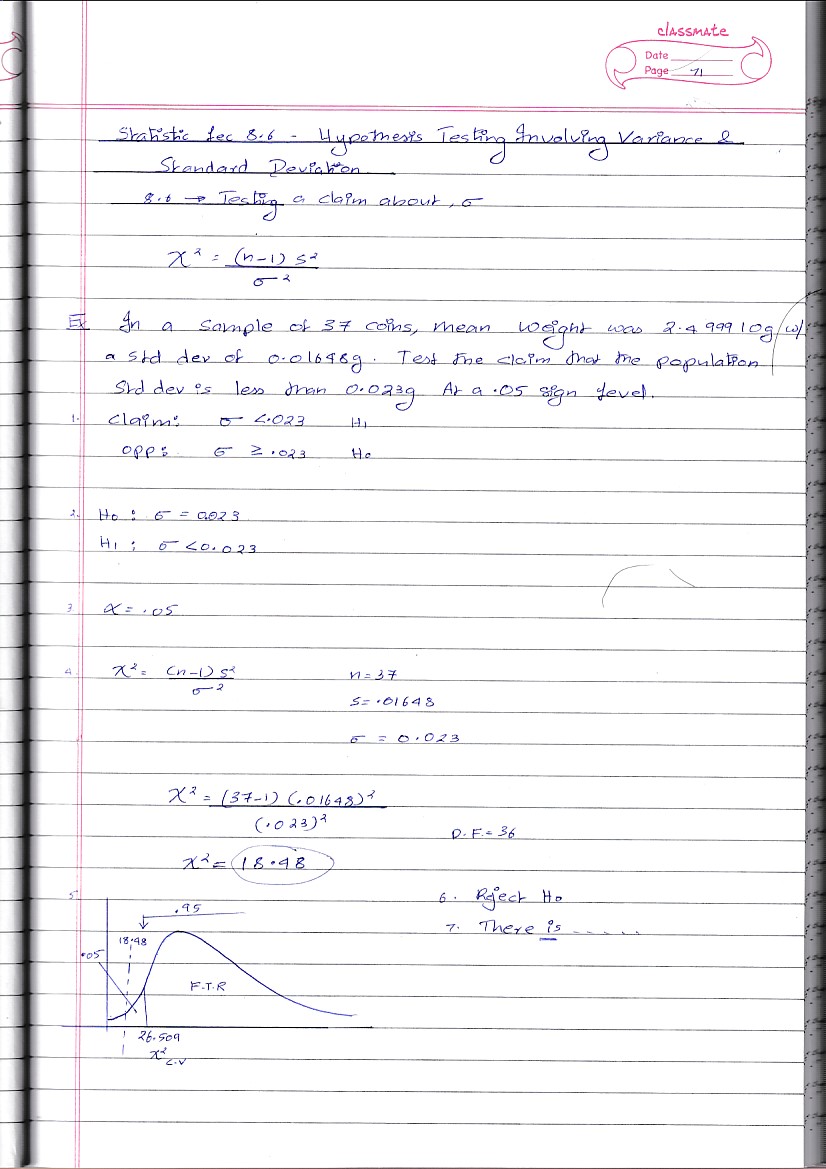 classmate
Date
Page 71
Statistic Lec 8.6 - Hypothesis Testing Involving Variance &
Standard Deviation
8.6 → Testing a claim about, σ
χ² = (n-1) s²
σ²
Ex In a sample of 37 coins, mean weight was 2.49991 0g w/
a std dev of 0.01648g. Test the claim that the population
Std dev is less than 0.023g At a .05 sign level.
1. Claim: σ <.023 H₁
Opp: σ ≥ .023 H₀
2. H₀ : σ = 0.023
H₁ : σ <0.023
3 α = .05
4. χ² = (n-1) s² n = 37
σ²
s= .01648
σ = 0.023
χ² = (37-1) (.01648)²
(.023)² D.F.= 36
χ² = 18.48
5. .95 6. Reject H₀
18.48 7. There is .....
.05
F.T.R
26.509
χ² c.v